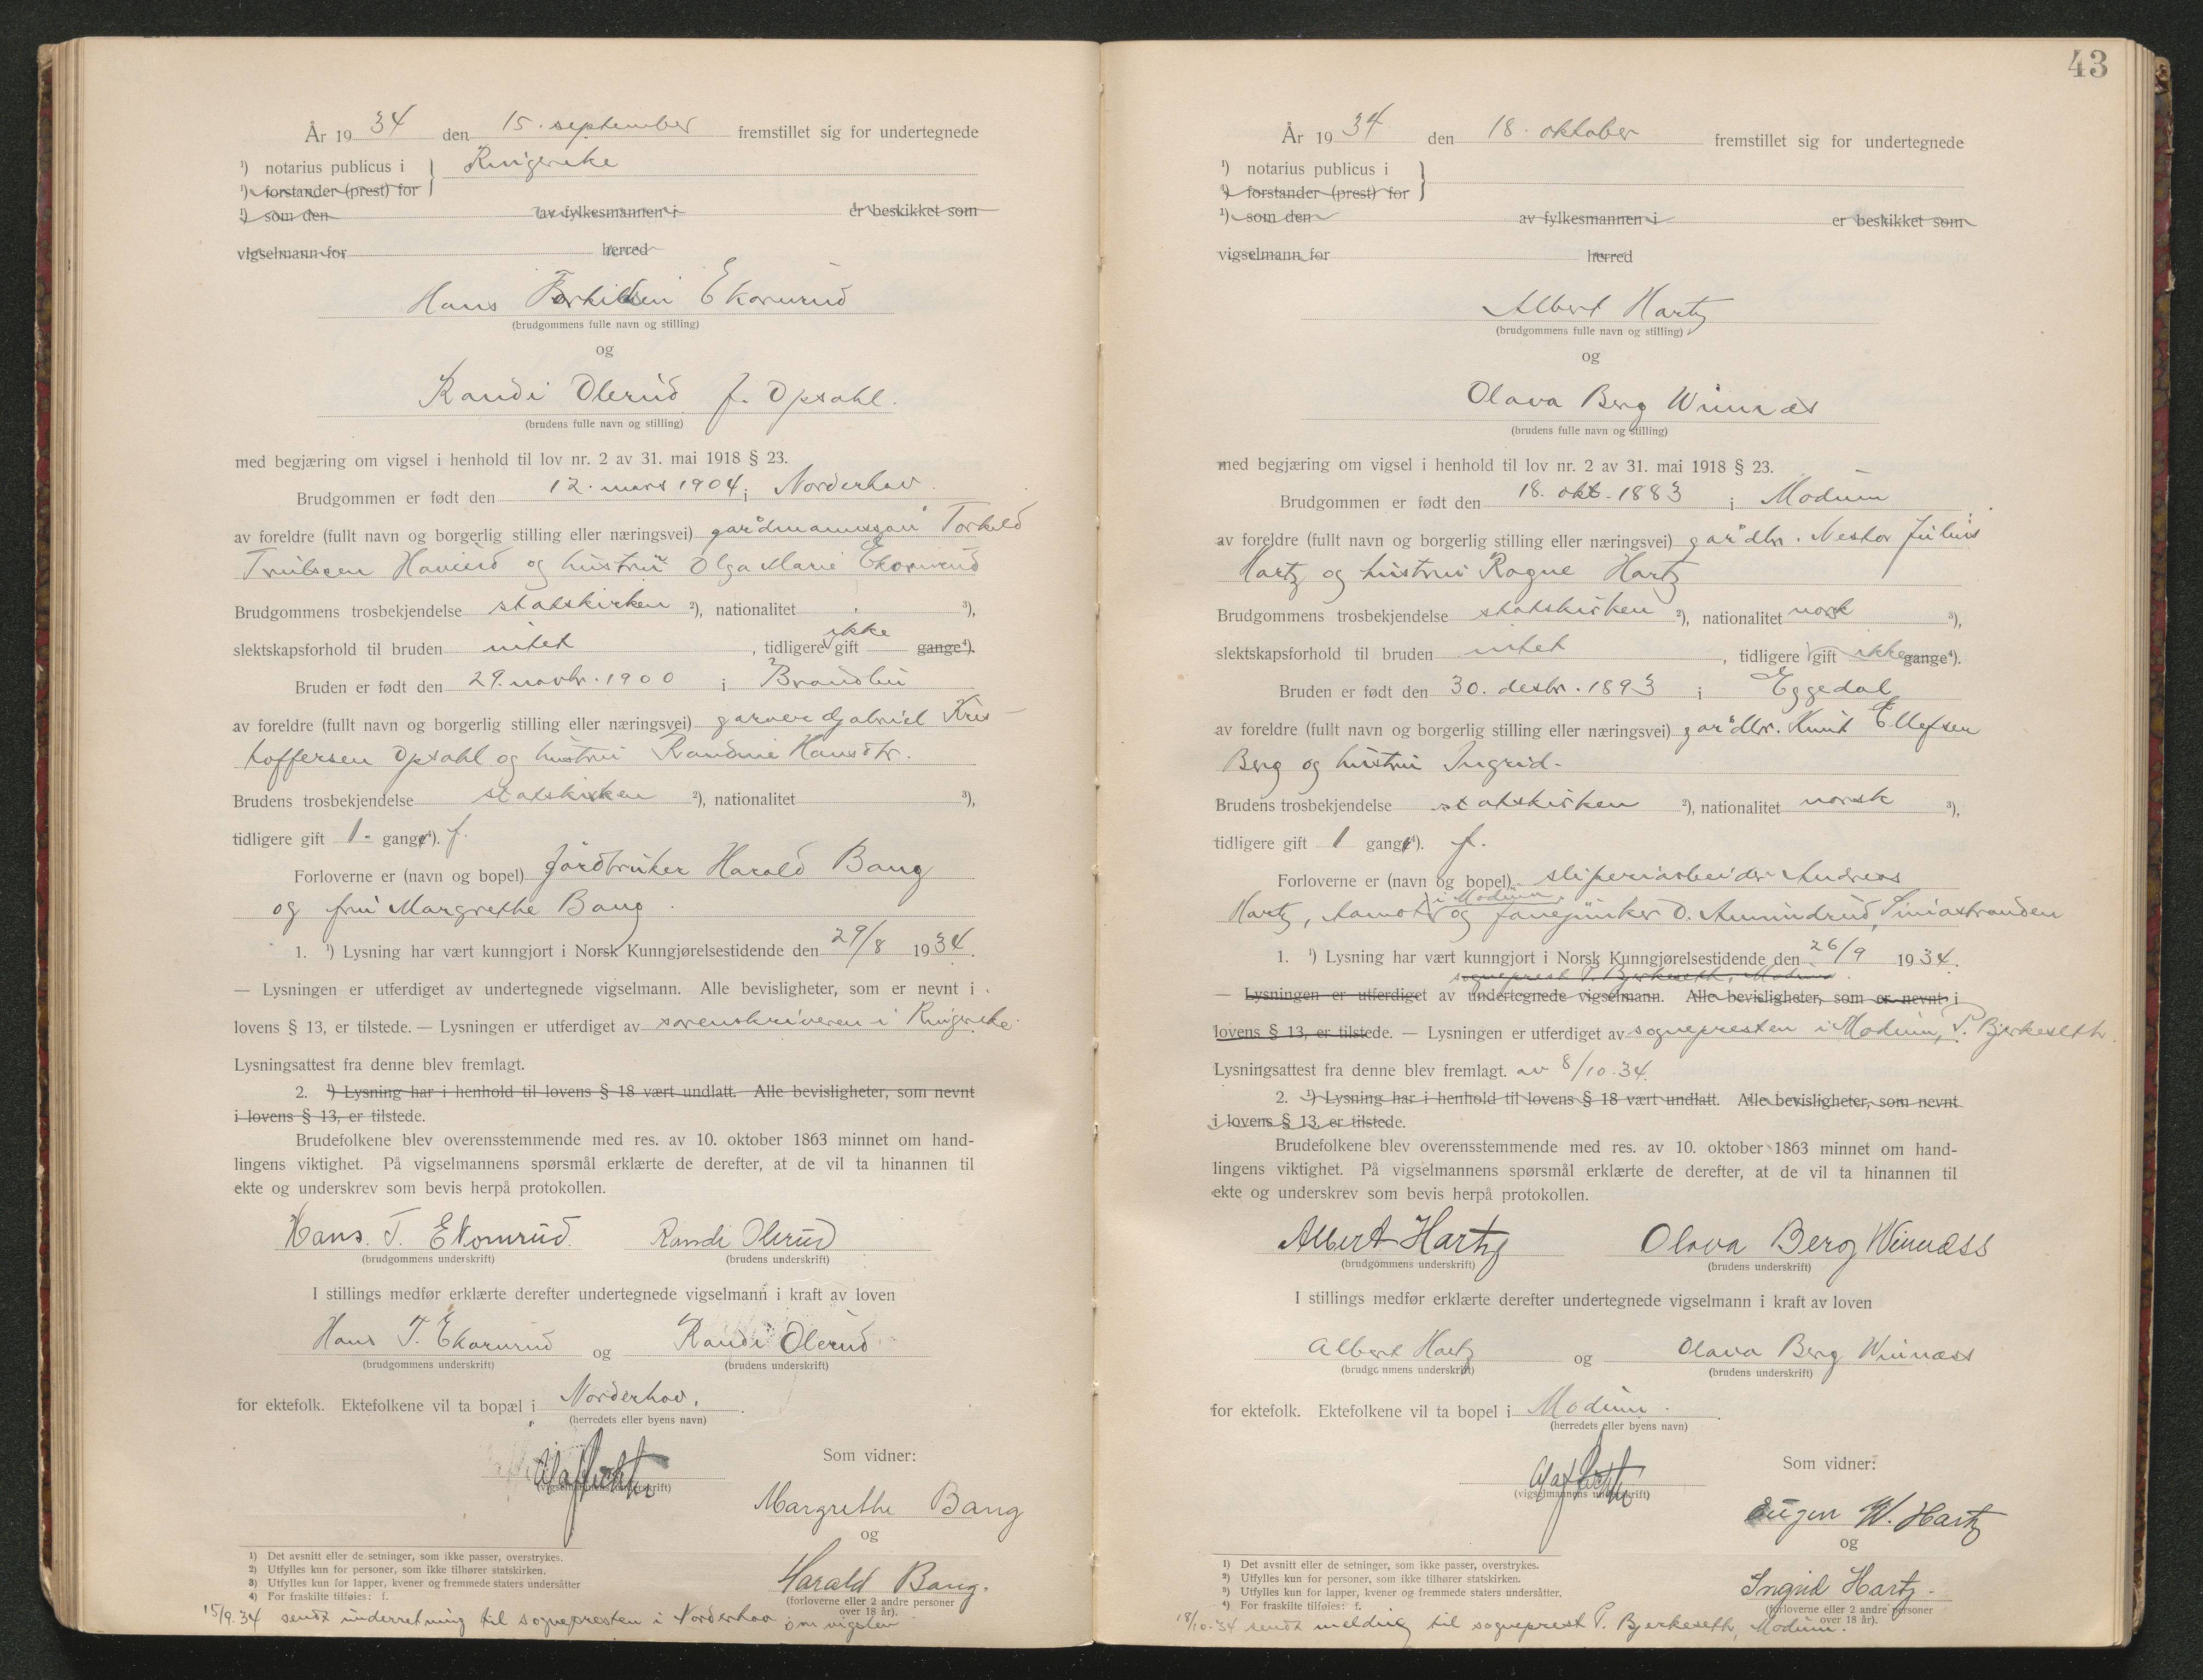 År 1934 den 15. september fremstillet sig for undertegnede
¹) notarius publicus i } Ringerike
¹) forstander (prest) for
¹) som den av fylkesmannen i er beskikket som
vigselmann for herred
Hans Torkildsen Ekornrud
(brudgommens fulle navn og stilling)
og
Randi Olerud f. Opsahl.
(brudens fulle navn og stilling)
med begjæring om vigsel i henhold til lov nr. 2 av 31. mai 1918 § 23.
Brudgommen er født den 12. mars 1904 i Norderhov.
av foreldre (fullt navn og borgerlig stilling eller næringsvei) gårdmannssøn Torkild
Trulsen Haverud og hustru Olga Marie Ekornrud
Brudgommens trosbekjendelse statskirken ²), nationalitet ³),
slektskapsforhold til bruden intet, tidligere ikke gift gange⁴).
Bruden er født den 29. novbr. 1900 i Brandbu
av foreldre (fullt navn og borgerlig stilling eller næringsvei) garver Gabriel Kris-
toffersen Opsahl og hustru Randine Hansdtr.
Brudens trosbekjendelse statskirken ²), nationalitet ³),
tidligere gift 1- gang⁴). f.
Forloverne er (navn og bopel) Jordbruker Harald Bang
og fru Margrethe Bang.
1. ¹) Lysning har vært kunngjort i Norsk Kunngjørelsestidende den 29/8 1934.
— Lysningen er utferdiget av undertegnede vigselmann. Alle bevisligheter, som er nevnt i
lovens § 13, er tilstede. — Lysningen er utferdiget av sorenskriveren i Ringerike.
Lysningsattest fra denne blev fremlagt.
2. ¹) Lysning har i henhold til lovens § 18 vært undlatt. Alle bevisligheter, som nevnt
i lovens § 13, er tilstede.
Brudefolkene blev overensstemmende med res. av 10. oktober 1863 minnet om hand-
lingens viktighet. På vigselmannens spørsmål erklærte de derefter, at de vil ta hinannen til
ekte og underskrev som bevis herpå protokollen.
Hans. T. Ekornrud. Randi Olerud
(brudgommens underskrift) (brudens underskrift)
I stillings medfør erklærte derefter undertegnede vigselmann i kraft av loven
Hans T. Ekornrud og Randi Olerud
(brudgommens underskrift) (brudens underskrift)
for ektefolk. Ektefolkene vil ta bopæl i Norderhov.
(herredets eller byens navn)
Som vidner:
(vigselmannens underskrift)
Margrethe Bang
og
Harald Bang.
(forloverne eller 2 andre personer
over 18 år).
1) Det avsnitt eller de setninger, som ikke passer, overstrykes.
2) Utfylles kun for personer, som ikke tilhører statskirken.
3) Utfylles kun for lapper, kvener og fremmede staters undersåtter
4) For fraskilte tilføies: f.
15/9.34 sendt underretning til sognepresten i Norderhov om vigslen
43
År 1934 den 18. oktober fremstillet sig for undertegnede
¹) notarius publicus i }
¹) forstander (prest) for
¹) som den av fylkesmannen i er beskikket som
vigselmann for herred
Albert Hartz
(brudgommens fulle navn og stilling)
og
Olava Berg Winnæs
(brudens fulle navn og stilling)
med begjæring om vigsel i henhold til lov nr. 2 av 31. mai 1918 § 23.
Brudgommen er født den 18. okt. 1883 i Modum
av foreldre (fullt navn og borgerlig stilling eller næringsvei) gårdbr. Nestor Julius
Hartz og hustru Ragne Hartz
Brudgommens trosbekjendelse statskirken ²), nationalitet norsk ³),
slektskapsforhold til bruden intet, tidligere gift ikke gange⁴).
Bruden er født den 30. desbr. 1893 i Eggedal
av foreldre (fullt navn og borgerlig stilling eller næringsvei) gårdbr. Knut Ellefsen
Berg og hustru Ingrid.
Brudens trosbekjendelse statskirken ²), nationalitet norsk ³),
tidligere gift 1 gang⁴). f.
Forloverne er (navn og bopel) sliperiarbeider Andreas
Hartz, Åmot i Modum, og fanejunker O. Amundrud,
1. ¹) Lysning har vært kunngjort i Norsk Kunngjørelsestidende den 26/9 1934.
sogneprest P. Bjerkeseth, Modum.
— Lysningen er utferdiget av undertegnede vigselmann. Alle bevisligheter, som er nevnt i
lovens § 13, er tilstede. — Lysningen er utferdiget av sognepresten i Modum, P. Bjerkeseth.
Lysningsattest fra denne blev fremlagt. av 8/10.34.
2. ¹) Lysning har i henhold til lovens § 18 vært undlatt. Alle bevisligheter, som nevnt
i lovens § 13, er tilstede.
Brudefolkene blev overensstemmende med res. av 10. oktober 1863 minnet om hand-
lingens viktighet. På vigselmannens spørsmål erklærte de derefter, at de vil ta hinannen til
ekte og underskrev som bevis herpå protokollen.
Albert Hartz Olava Berg Winnæss
(brudgommens underskrift) (brudens underskrift)
I stillings medfør erklærte derefter undertegnede vigselmann i kraft av loven
Albert Hartz og Olava Berg Winnæss
(brudgommens underskrift) (brudens underskrift)
for ektefolk. Ektefolkene vil ta bopel i Modum.
(herredets eller byens navn)
Som vidner:
(vigselmannens underskrift)
Eugen W. Hartz
og
Ingrid Hartz.
(forloverne eller 2 andre personer
over 18 år).
1) Det avsnitt eller de setninger, som ikke passer, overstrykes.
2) Utfylles kun for personer, som ikke tilhører statskirken.
3) Utfylles kun for lapper, kvener og fremmede staters undersåtter.
4) For fraskilte tilføies: f.
18/10.34 sendt melding til sogneprest P. Bjerkeseth, Modum.